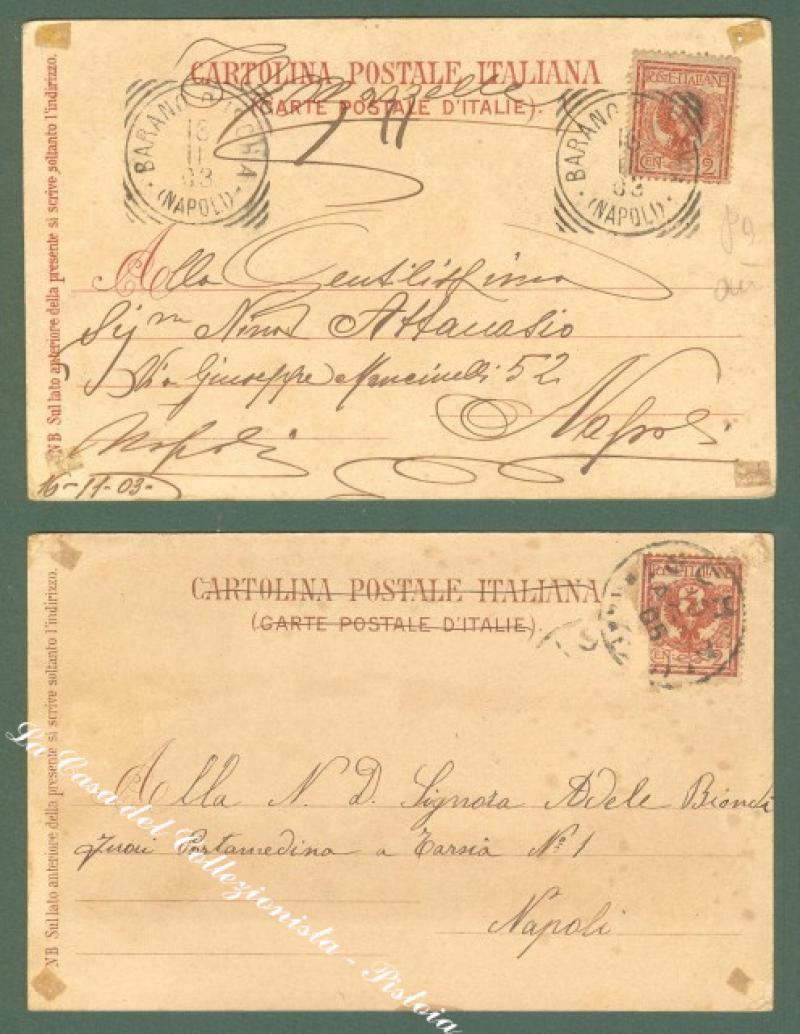 CARTOLINA POSTALE ITALIANA
(CARTE POSTALE D'ITALIE).
BARANO D'ISCHIA
16
11
03
(NAPOLI)
POSTE ITALIANE
CEN 2
BARANO D'
16
03
(NAPOLI)
NB Sul lato anteriore della presente si scrive soltanto l'indirizzo.
Alla Gentilissima
Sigm Nina Attanasio
Via Giuseppe Mancinelli 52
Napoli
Napoli
16-11-03-
CARTOLINA POSTALE ITALIANA
(CARTE POSTALE D'ITALIE).
POSTE ITALIANE
CEN 2
05
NB Sul lato anteriore della presente si scrive soltanto l'indirizzo.
Alla N. D. Signora Adele Biondi
Fuori Portamedina a Tarsia No. 1
Napoli
La Casa del Collezionista - Pistoia